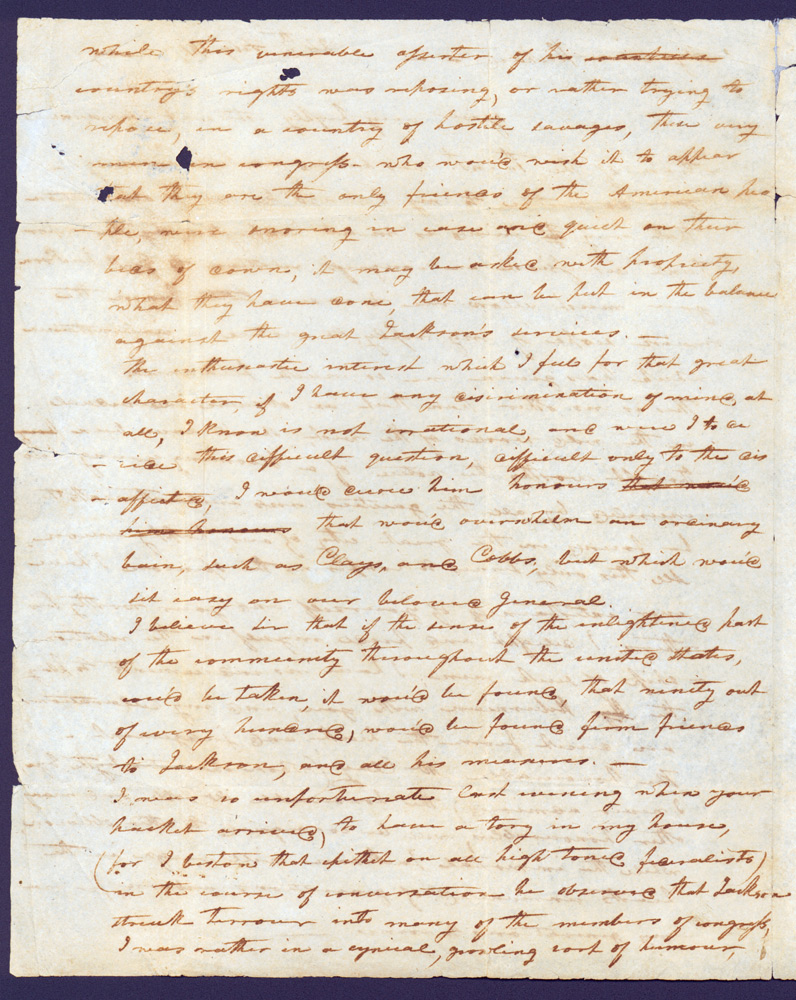 while this venerable asserter of his countries
country's rights was reposing, or rather trying to
repose, in a country of hostile savages, these very
men in congress who wou'd wish it to appear
that they are the only friends of the American peo
ple, were snoring in ease and quiet on their
beds of down, it may be asked with propriety,
what they have done, that can be put in the balance
against the great Jackson's services. —
The enthusiastic interest which I feel for that great
character, if I have any discrimination of mind, at
all, I know is not irrational, and were I to de
- cide this difficult question, difficult only to the dis
- affected, I wou'd crown him honours that wou'd
him honours that wou'd overwhelm an ordinary
bain, such as Clays, and Cobbs, but which wou'd
sit easy on our beloved General.
I believe Sir that if the sense of the enlightened part
of the community throughout the united states,
cou'd be taken, it wou'd be found, that ninity out
of every hundred, wou'd be found firm friends
to Jackson, and all his measures. —
I was so unfortunate last evening when your
packet arrived, to have a tory in my house,
(for I bestow that epithet on all high toned fedralists)
in the course of conversation he observed that Jackson
struck terrour into many of the members of congress,
I was rather in a cynical, growling sort of humour,